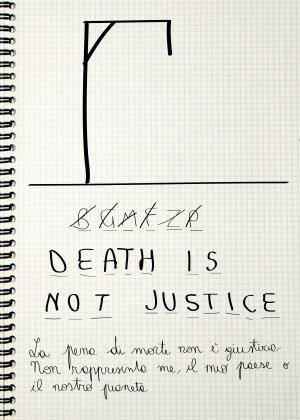 DEATH IS
NOT JUSTICE
La pena di morte non è giustizia
Non rappresenta me, il mio paese o
il nostro pianeta